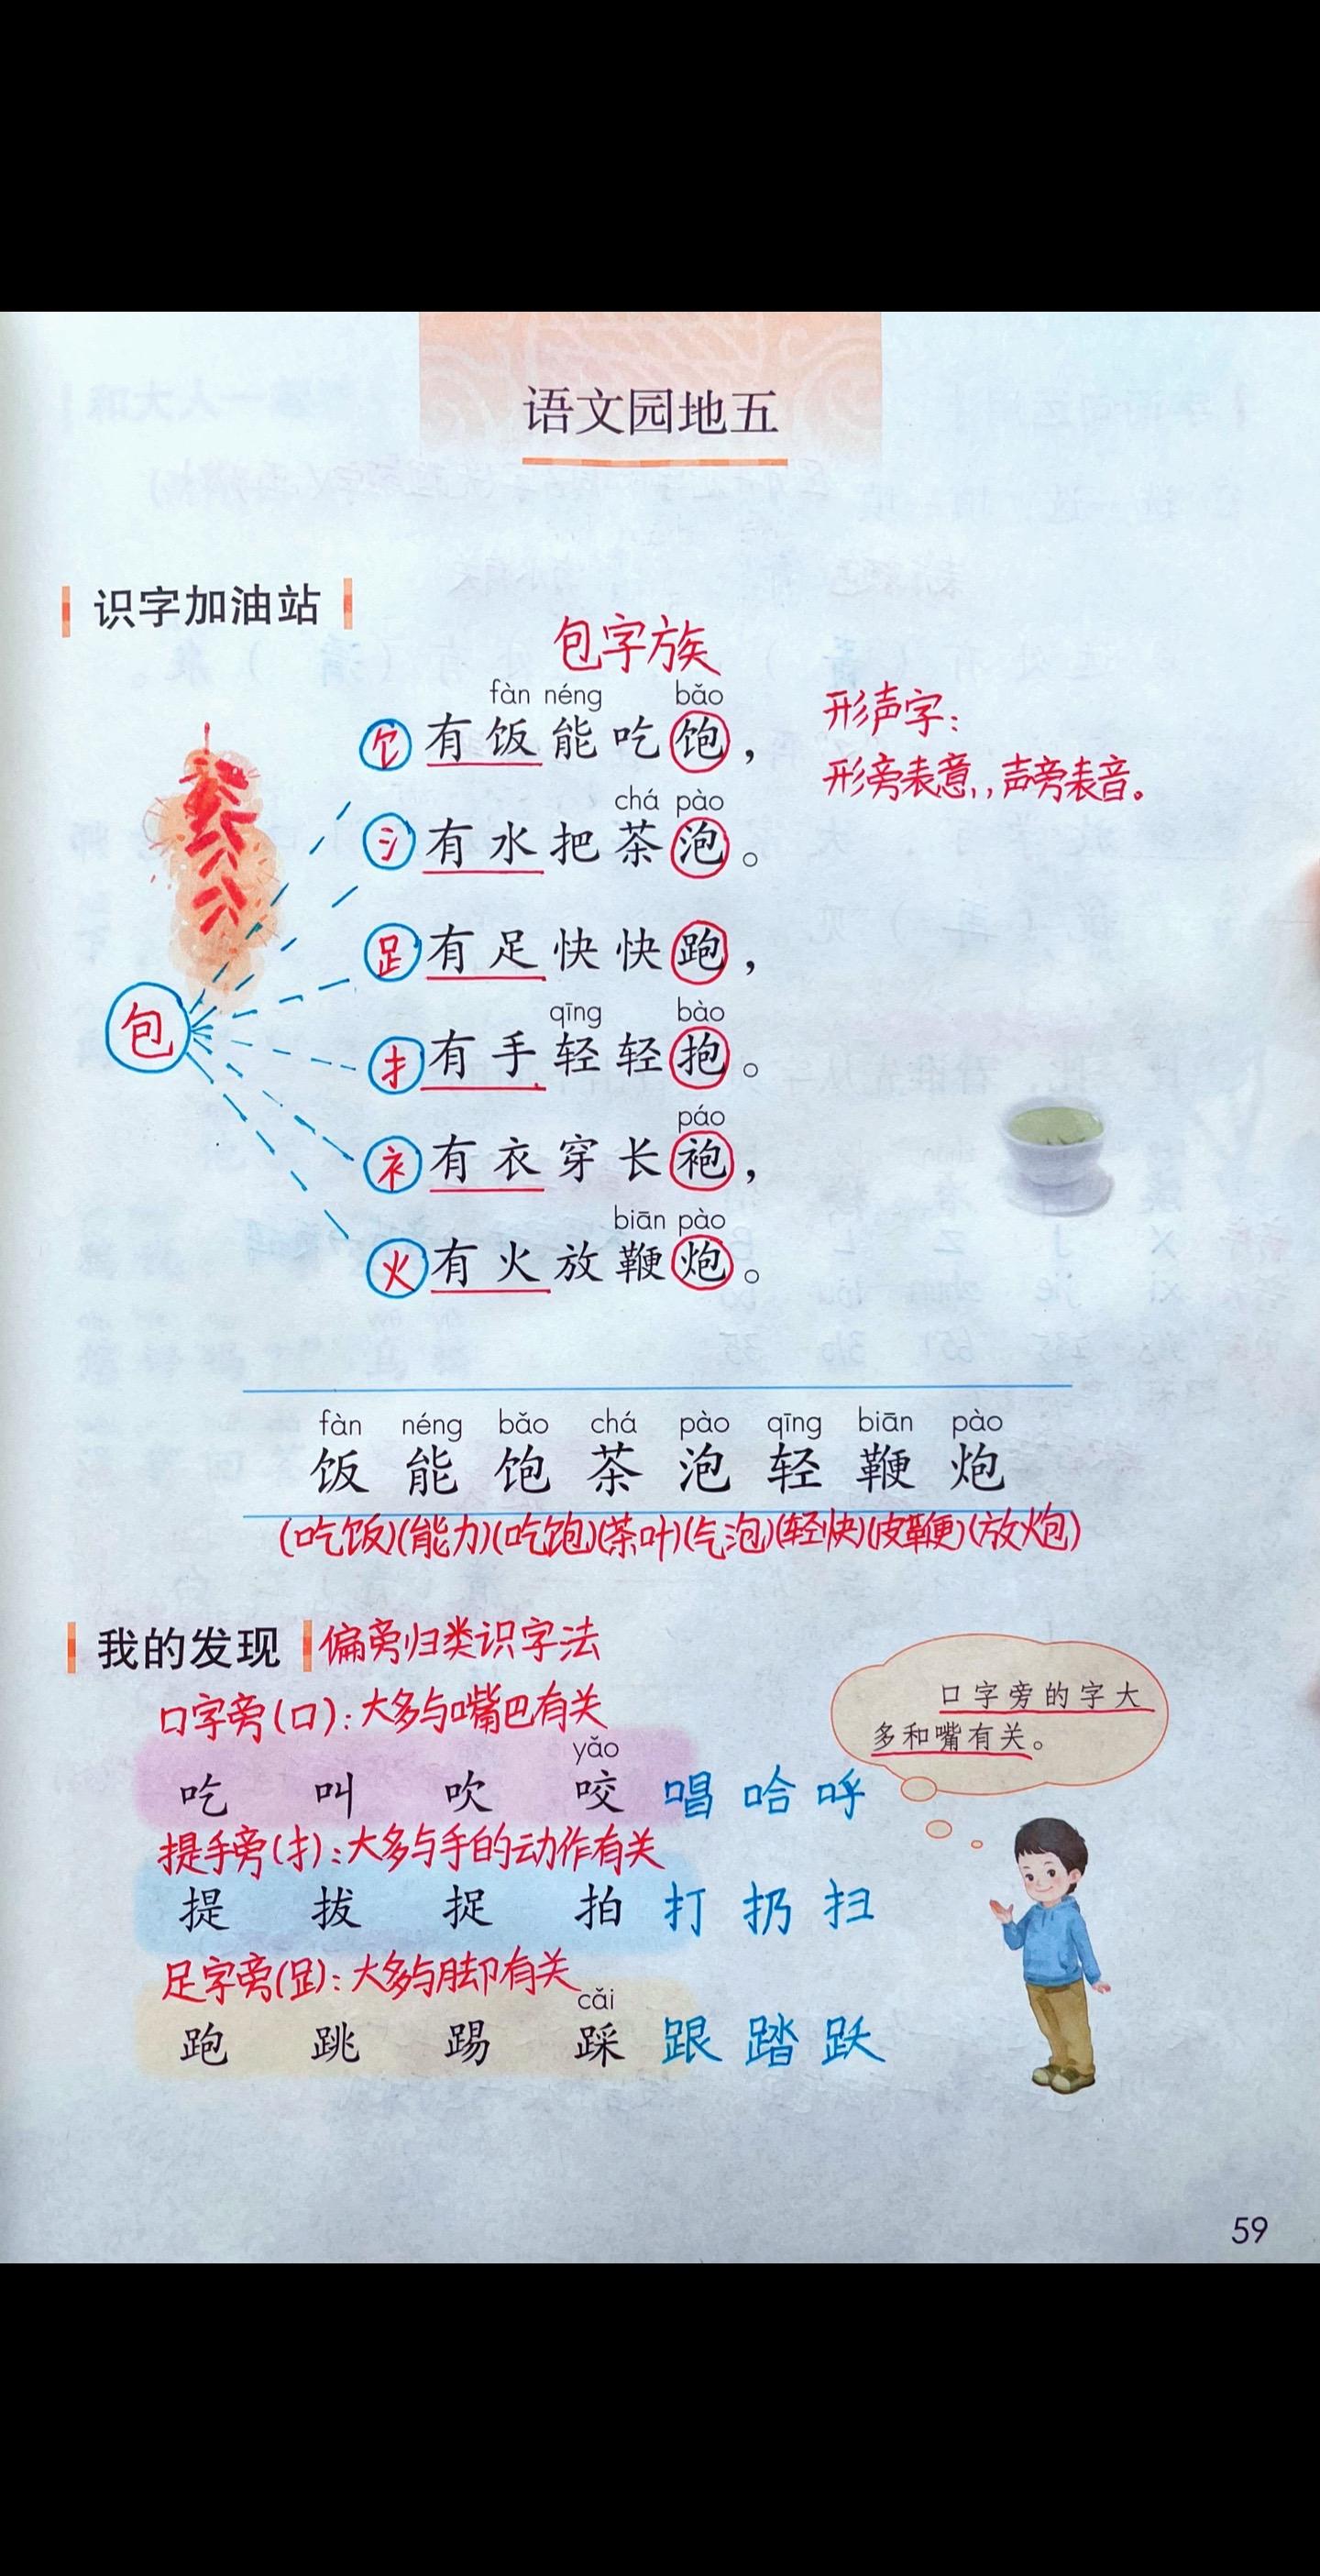 语文园地五
识字加油站
包字族
fàn néng bǎo
饣 有饭能吃饱，
形声字：
形旁表意，声旁表音。
chá pào
氵 有水把茶泡。
𧾷 有足快快跑，
包
qīng bào
扌 有手轻轻抱。
páo
衤 有衣穿长袍，
biān pào
火 有火放鞭炮。
fàn néng bǎo chá pào qīng biān pào
饭 能 饱 茶 泡 轻 鞭 炮
(吃饭)(能力)(吃饱)(茶叶)(气泡)(轻快)(皮鞭)(放炮)
我的发现 偏旁归类识字法
口字旁(口)：大多与嘴巴有关
口字旁的字大
多和嘴有关。
yǎo
吃 叫 吹 咬 唱 哈 呼
提手旁(扌)：大多与手的动作有关
提 拔 捉 拍 打 扔 扫
足字旁(𧾷)：大多与脚有关
cǎi
跑 跳 踢 踩 跟 踏 跃
59